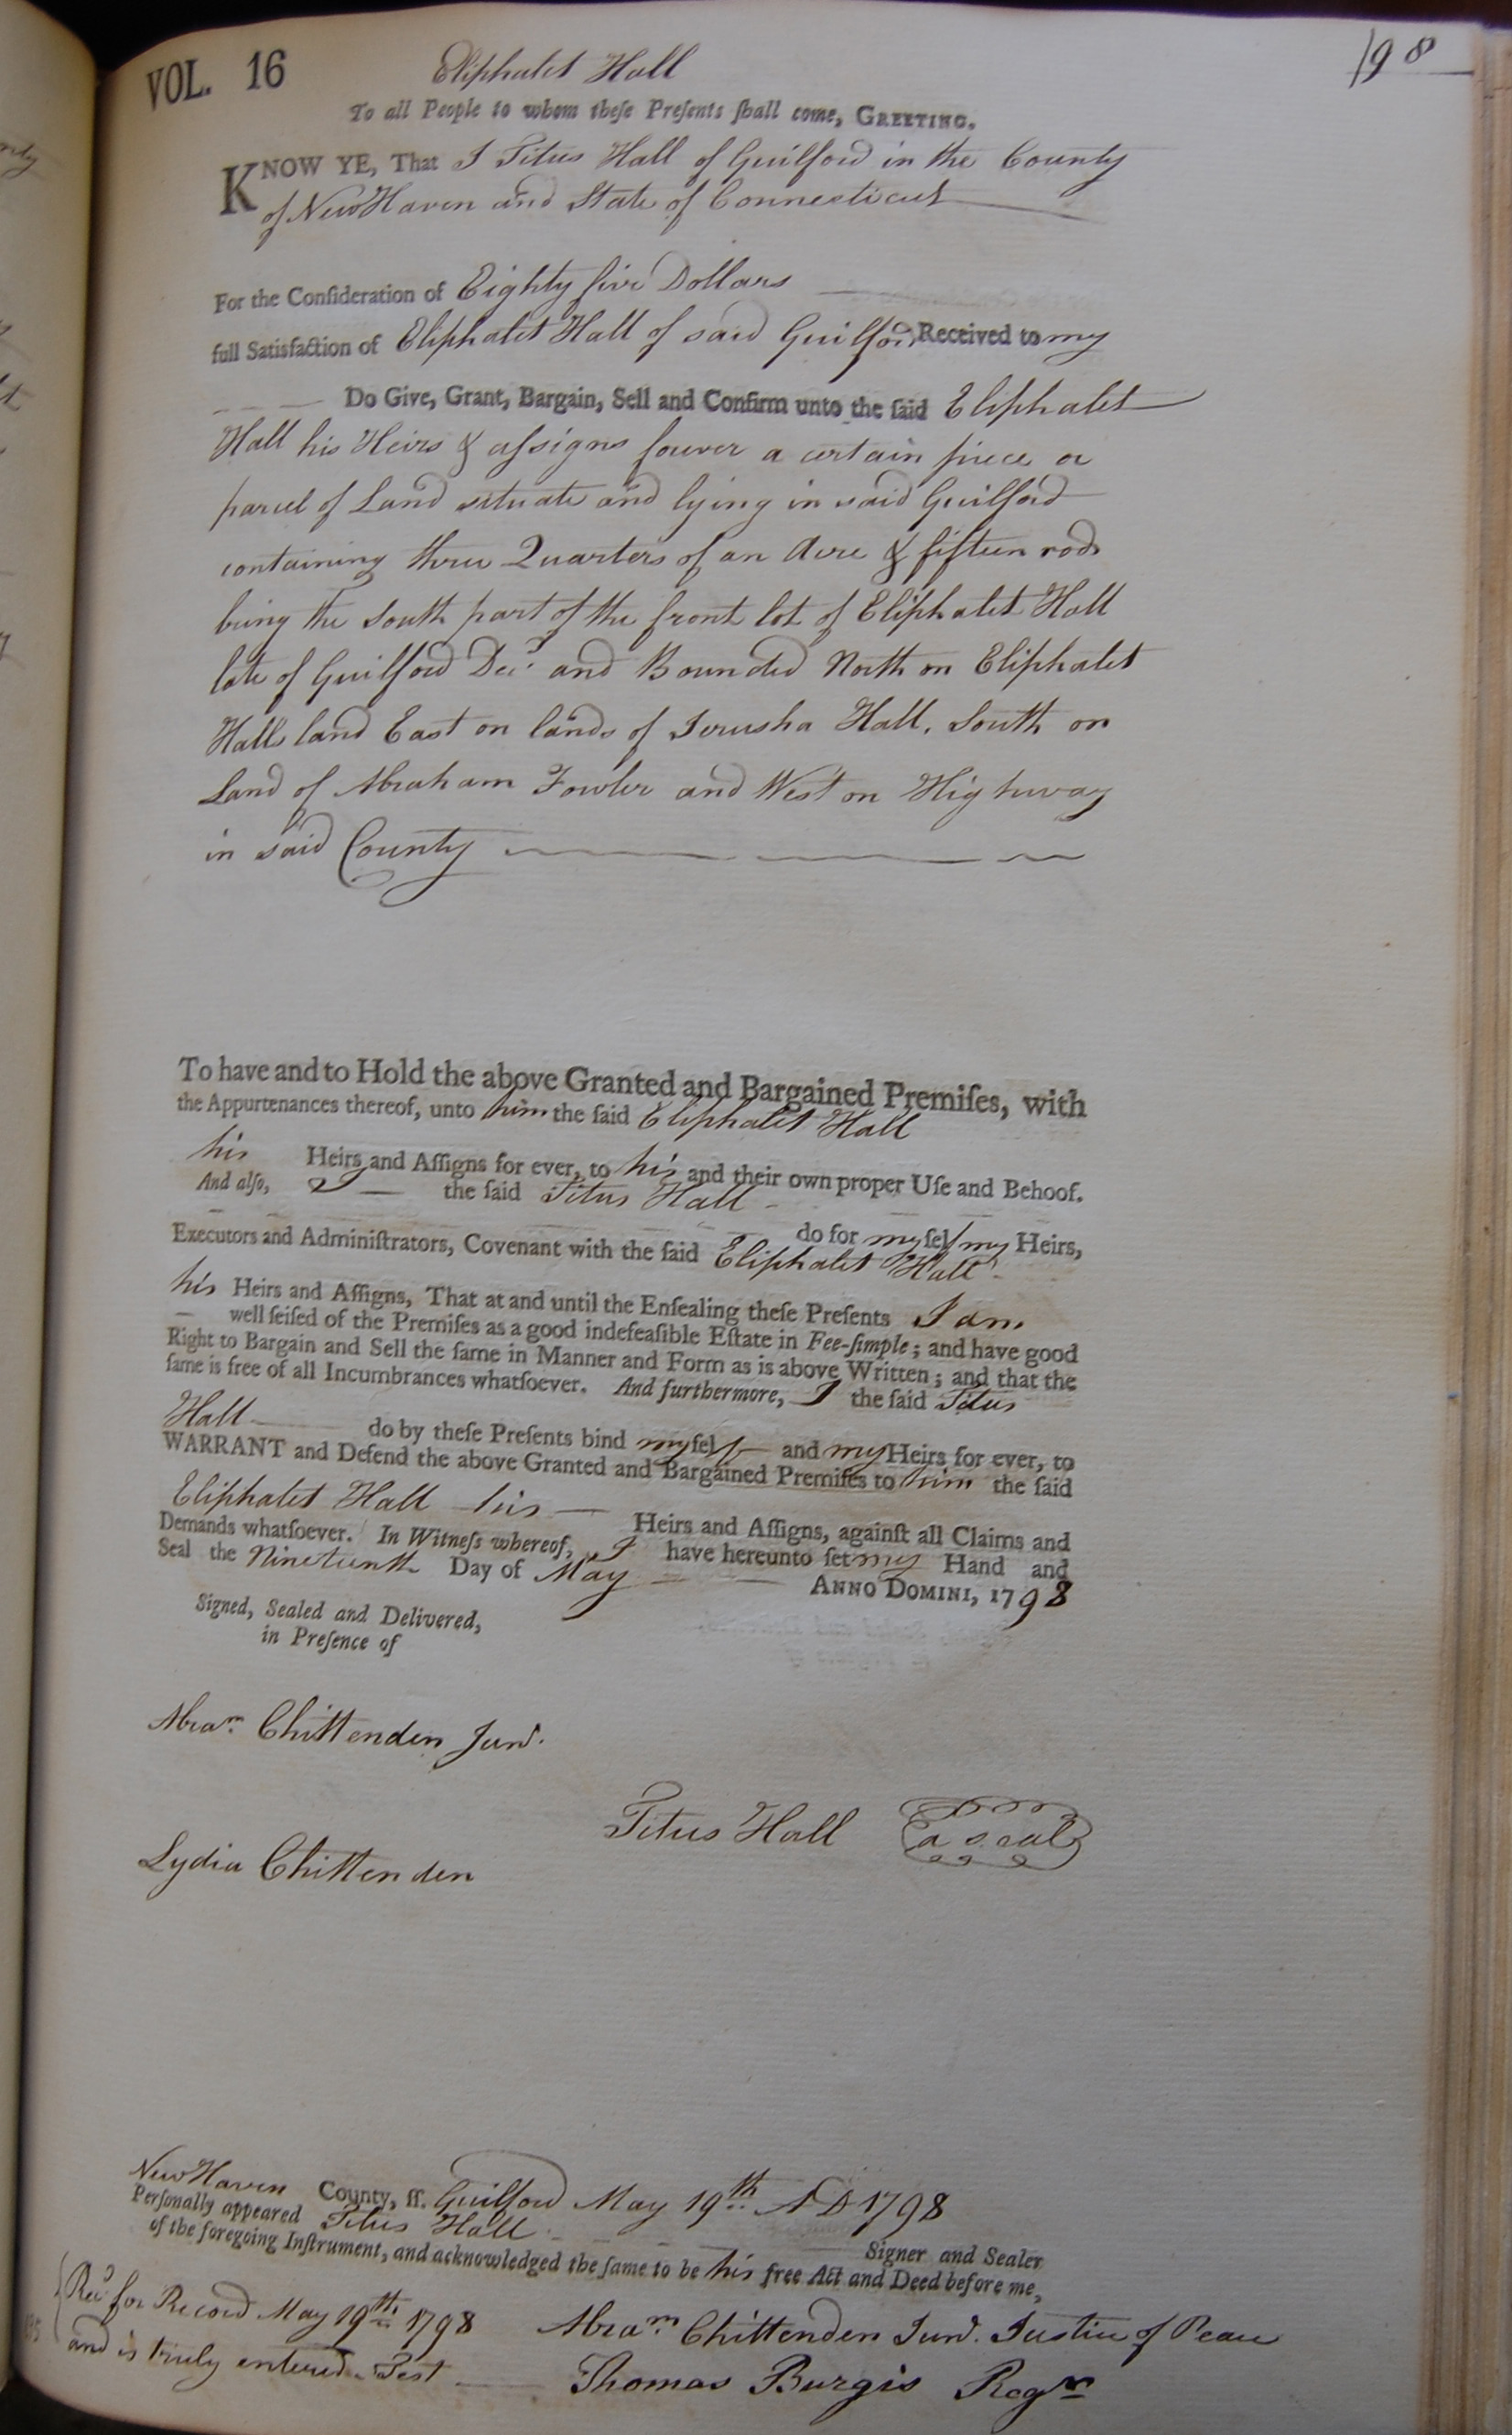 VOL. 16
198
Eliphalet Hall
To all People to whom theſe Preſents ſhall come, GREETING.
KNOW YE, That I Titus Hall of Guilford in the County
of New Haven and State of Connecticut
For the Conſideration of Eighty five Dollars
full Satisfaction of Eliphalet Hall of said Guilford Received to my
Do Give, Grant, Bargain, Sell and Confirm unto the ſaid Eliphalet
Hall his Heirs & aſsigns forever a certain piece or
parcel of Land situate and lying in said Guilford
containing three Quarters of an Acre & fifteen rods
being the South part of the front lot of Eliphalet Hall
late of Guilford Decd and Bounded North on Eliphalet
Halls land East on lands of Jerusha Hall, South on
Land of Abraham Fowler and West on Highway
in said County
To have and to Hold the above Granted and Bargained Premiſes, with
the Appurtenances thereof, unto him the ſaid Eliphalet Hall
his Heirs and Aſſigns for ever, to his and their own proper Uſe and Behoof.
And alſo, I the ſaid Titus Hall
do for myſelf my Heirs,
Executors and Adminiſtrators, Covenant with the ſaid Eliphalet Hall
his Heirs and Aſſigns, That at and until the Enſealing theſe Preſents I am
well ſeiſed of the Premiſes as a good indefeaſible Eſtate in Fee-ſimple; and have good
Right to Bargain and Sell the ſame in Manner and Form as is above Written; and that the
ſame is free of all Incumbrances whatſoever. And furthermore, I the ſaid Titus
Hall do by theſe Preſents bind myſelf and my Heirs for ever, to
WARRANT and Defend the above Granted and Bargained Premiſes to him the ſaid
Eliphalet Hall his Heirs and Aſſigns, againſt all Claims and
Demands whatſoever. In Witneſs whereof, I have hereunto ſet my Hand and
Seal the Nineteenth Day of May ANNO DOMINI, 1798
Signed, Sealed and Delivered,
in Preſence of
Abram Chittenden Junr.
Titus Hall a seal
Lydia Chittenden
New Haven County, ſſ. Guilford May 19th AD 1798
Perſonally appeared Titus Hall
Signer and Sealer
of the foregoing Inſtrument, and acknowledged the ſame to be his free Act and Deed before me,
Recd for Record May 19th 1798 Abram Chittenden Junr. Justice of Peace
and is truly entered Test Thomas Burgis Regr